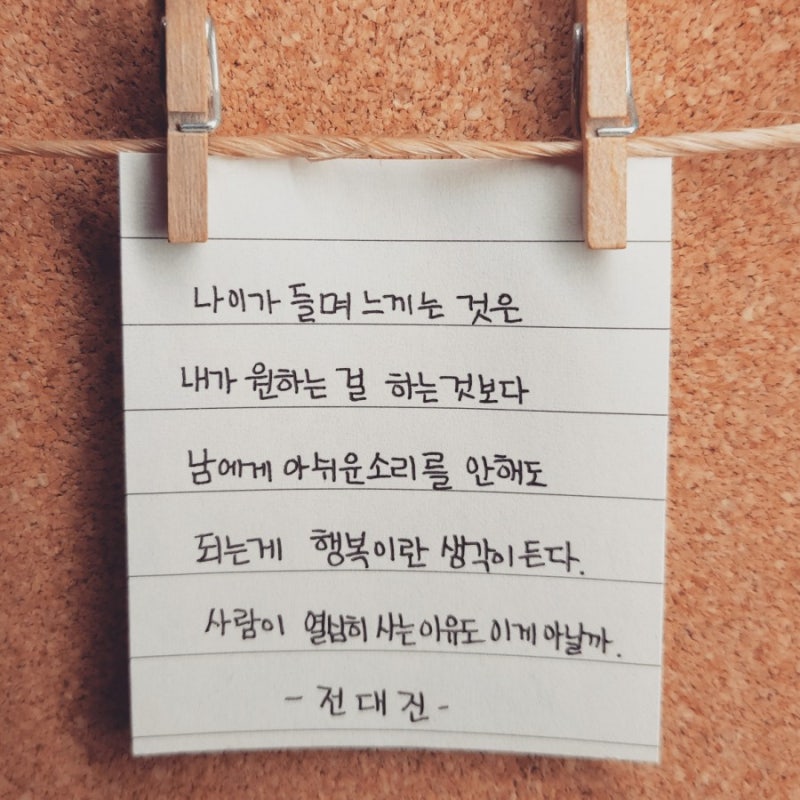 나이가 들며 느끼는 것은
내가 원하는 걸 하는것보다
남에게 아쉬운소리를 안해도
되는게 행복이란 생각이든다.
사람이 열심히 사는이유도 이게 아닐까.
- 전대진 -